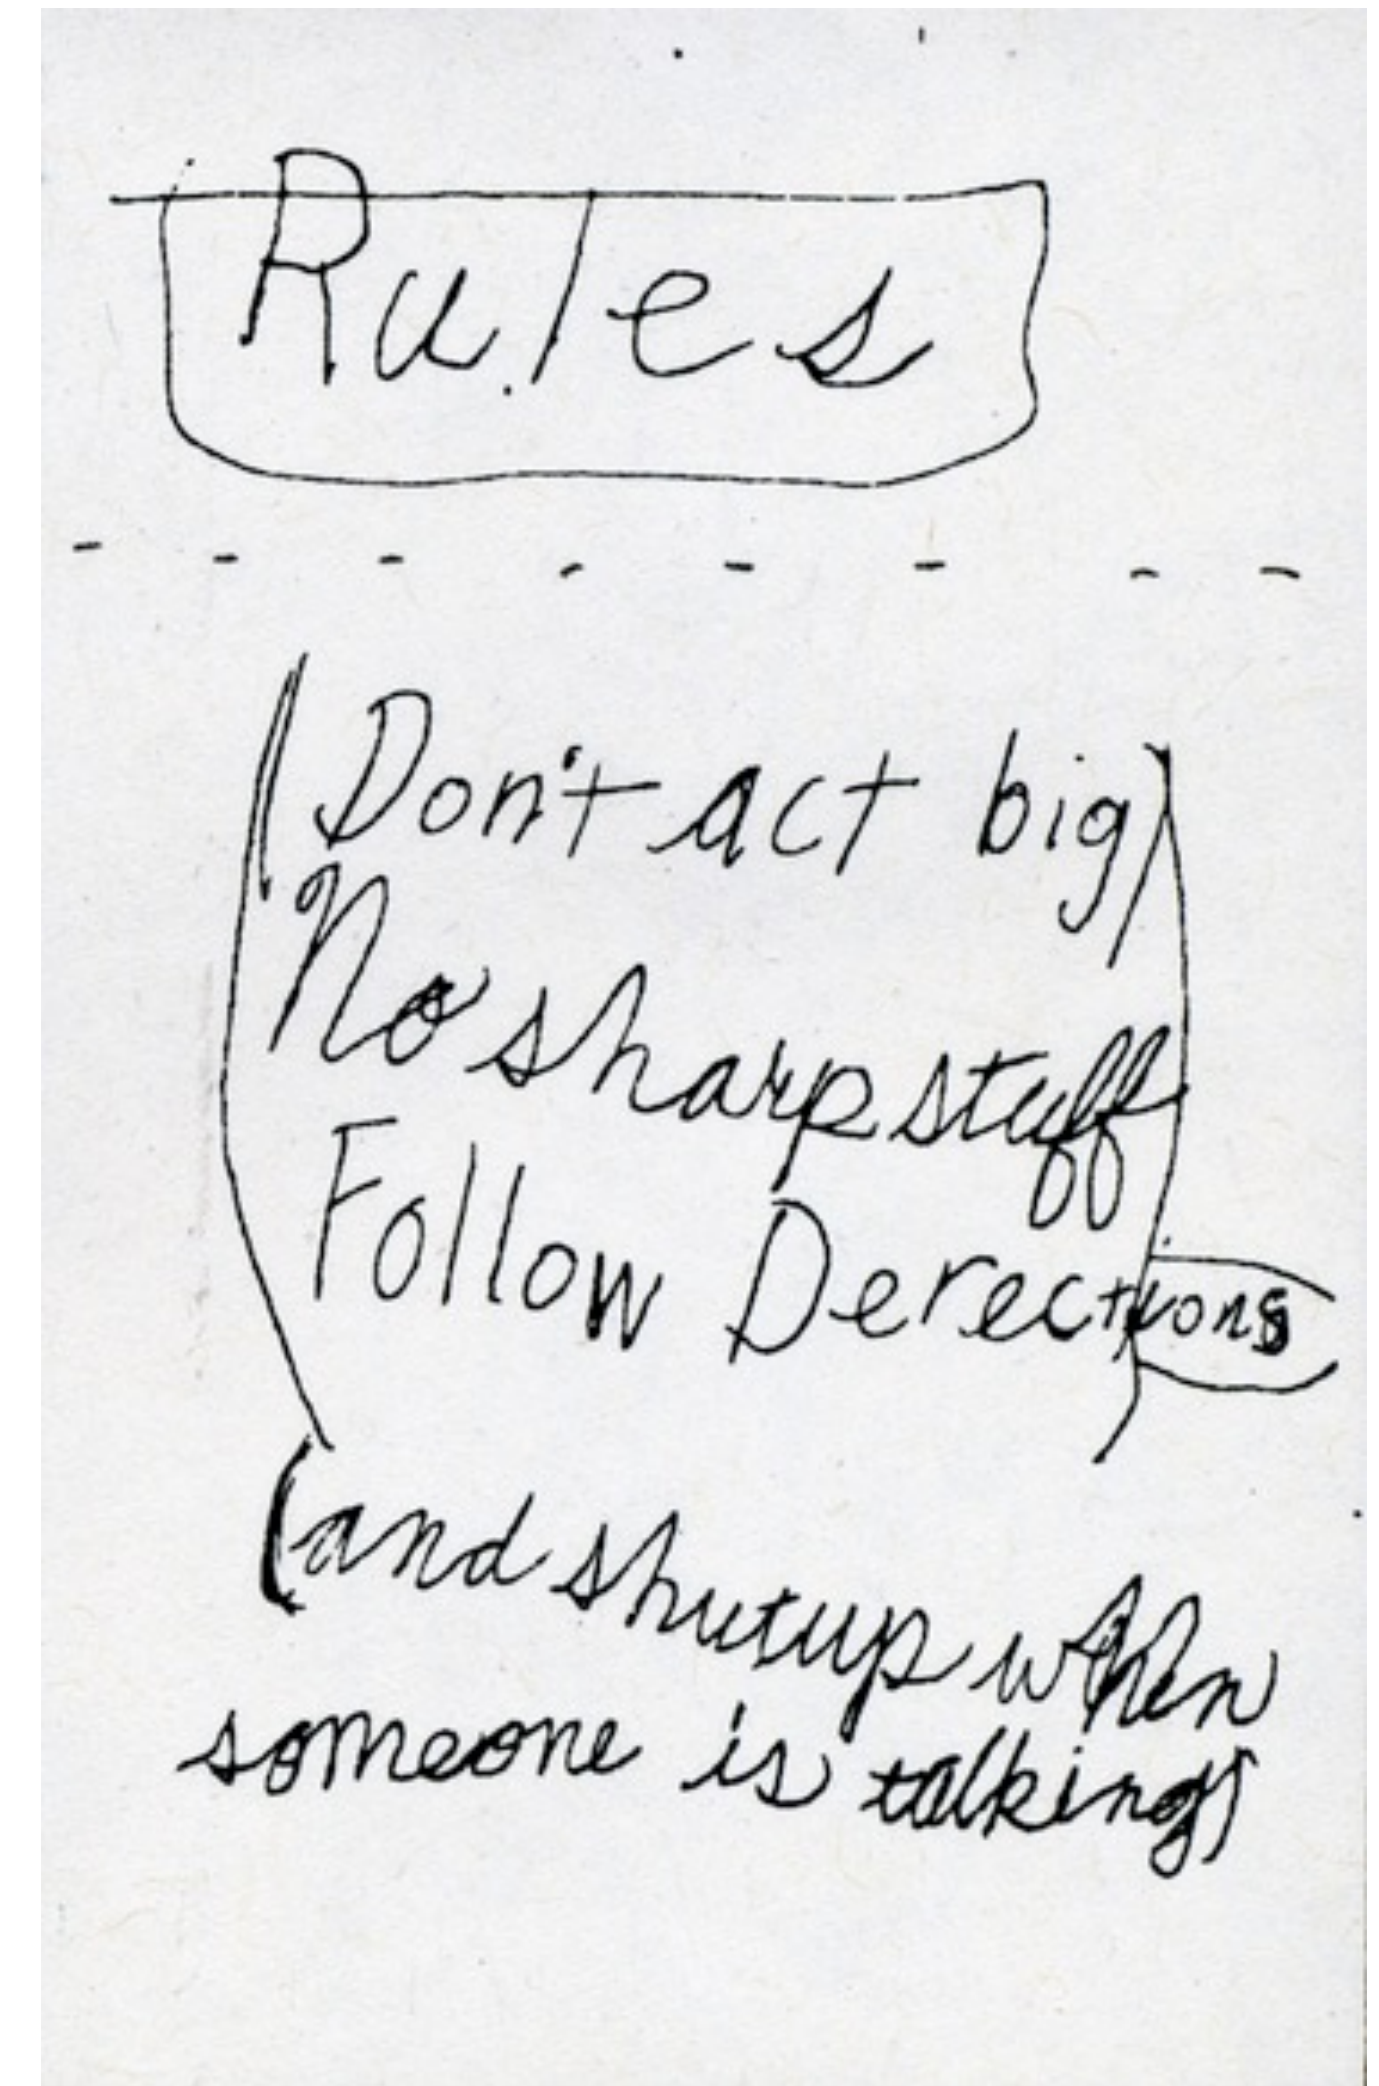 Rules
- - - - - - - -
(Don't act big)
No sharp stuff
Follow Derections
(and shutup when
someone is talking)